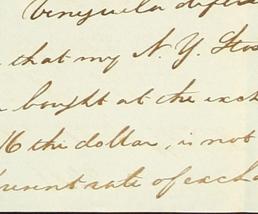 Venezuela
that my N. Y. Stoc
bought at the exch
16 the dollar, is not
present rate of excha